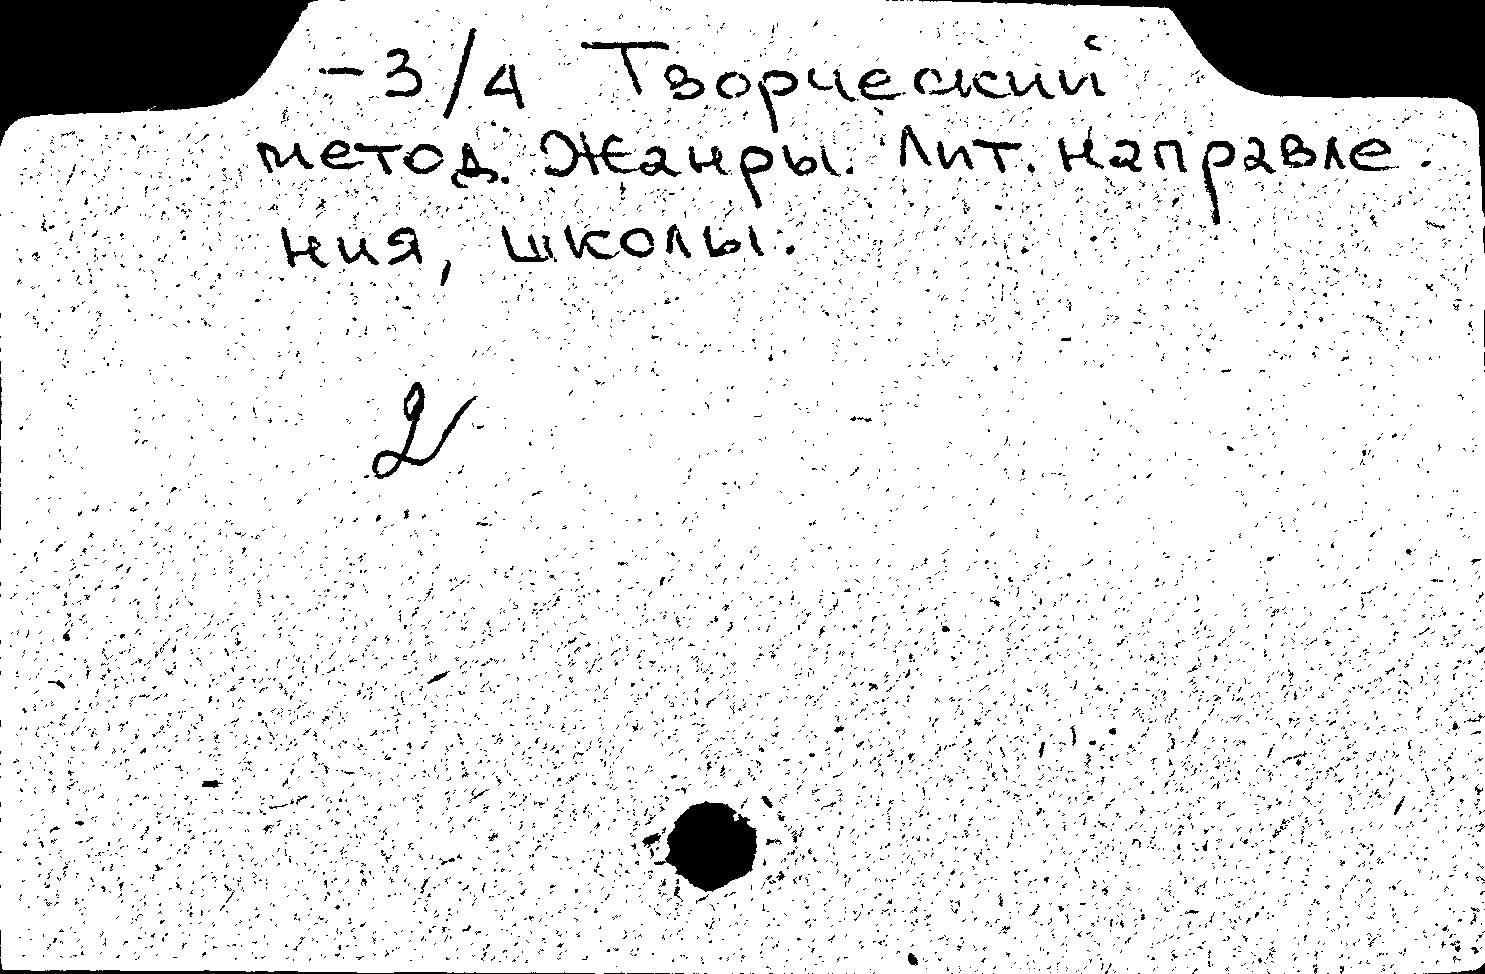 -3/4 Творческий
метод. Жанры. Лит. направле-
ния, школы.
2